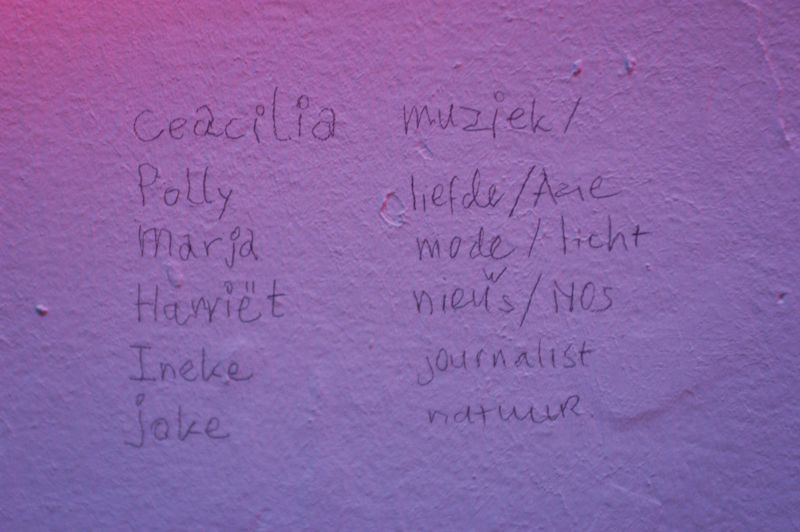 ceacilia muziek/
Polly liefde/Azie
Marja mode/licht
Harriët nieuws/NOS
Ineke journalist
joke natuur.